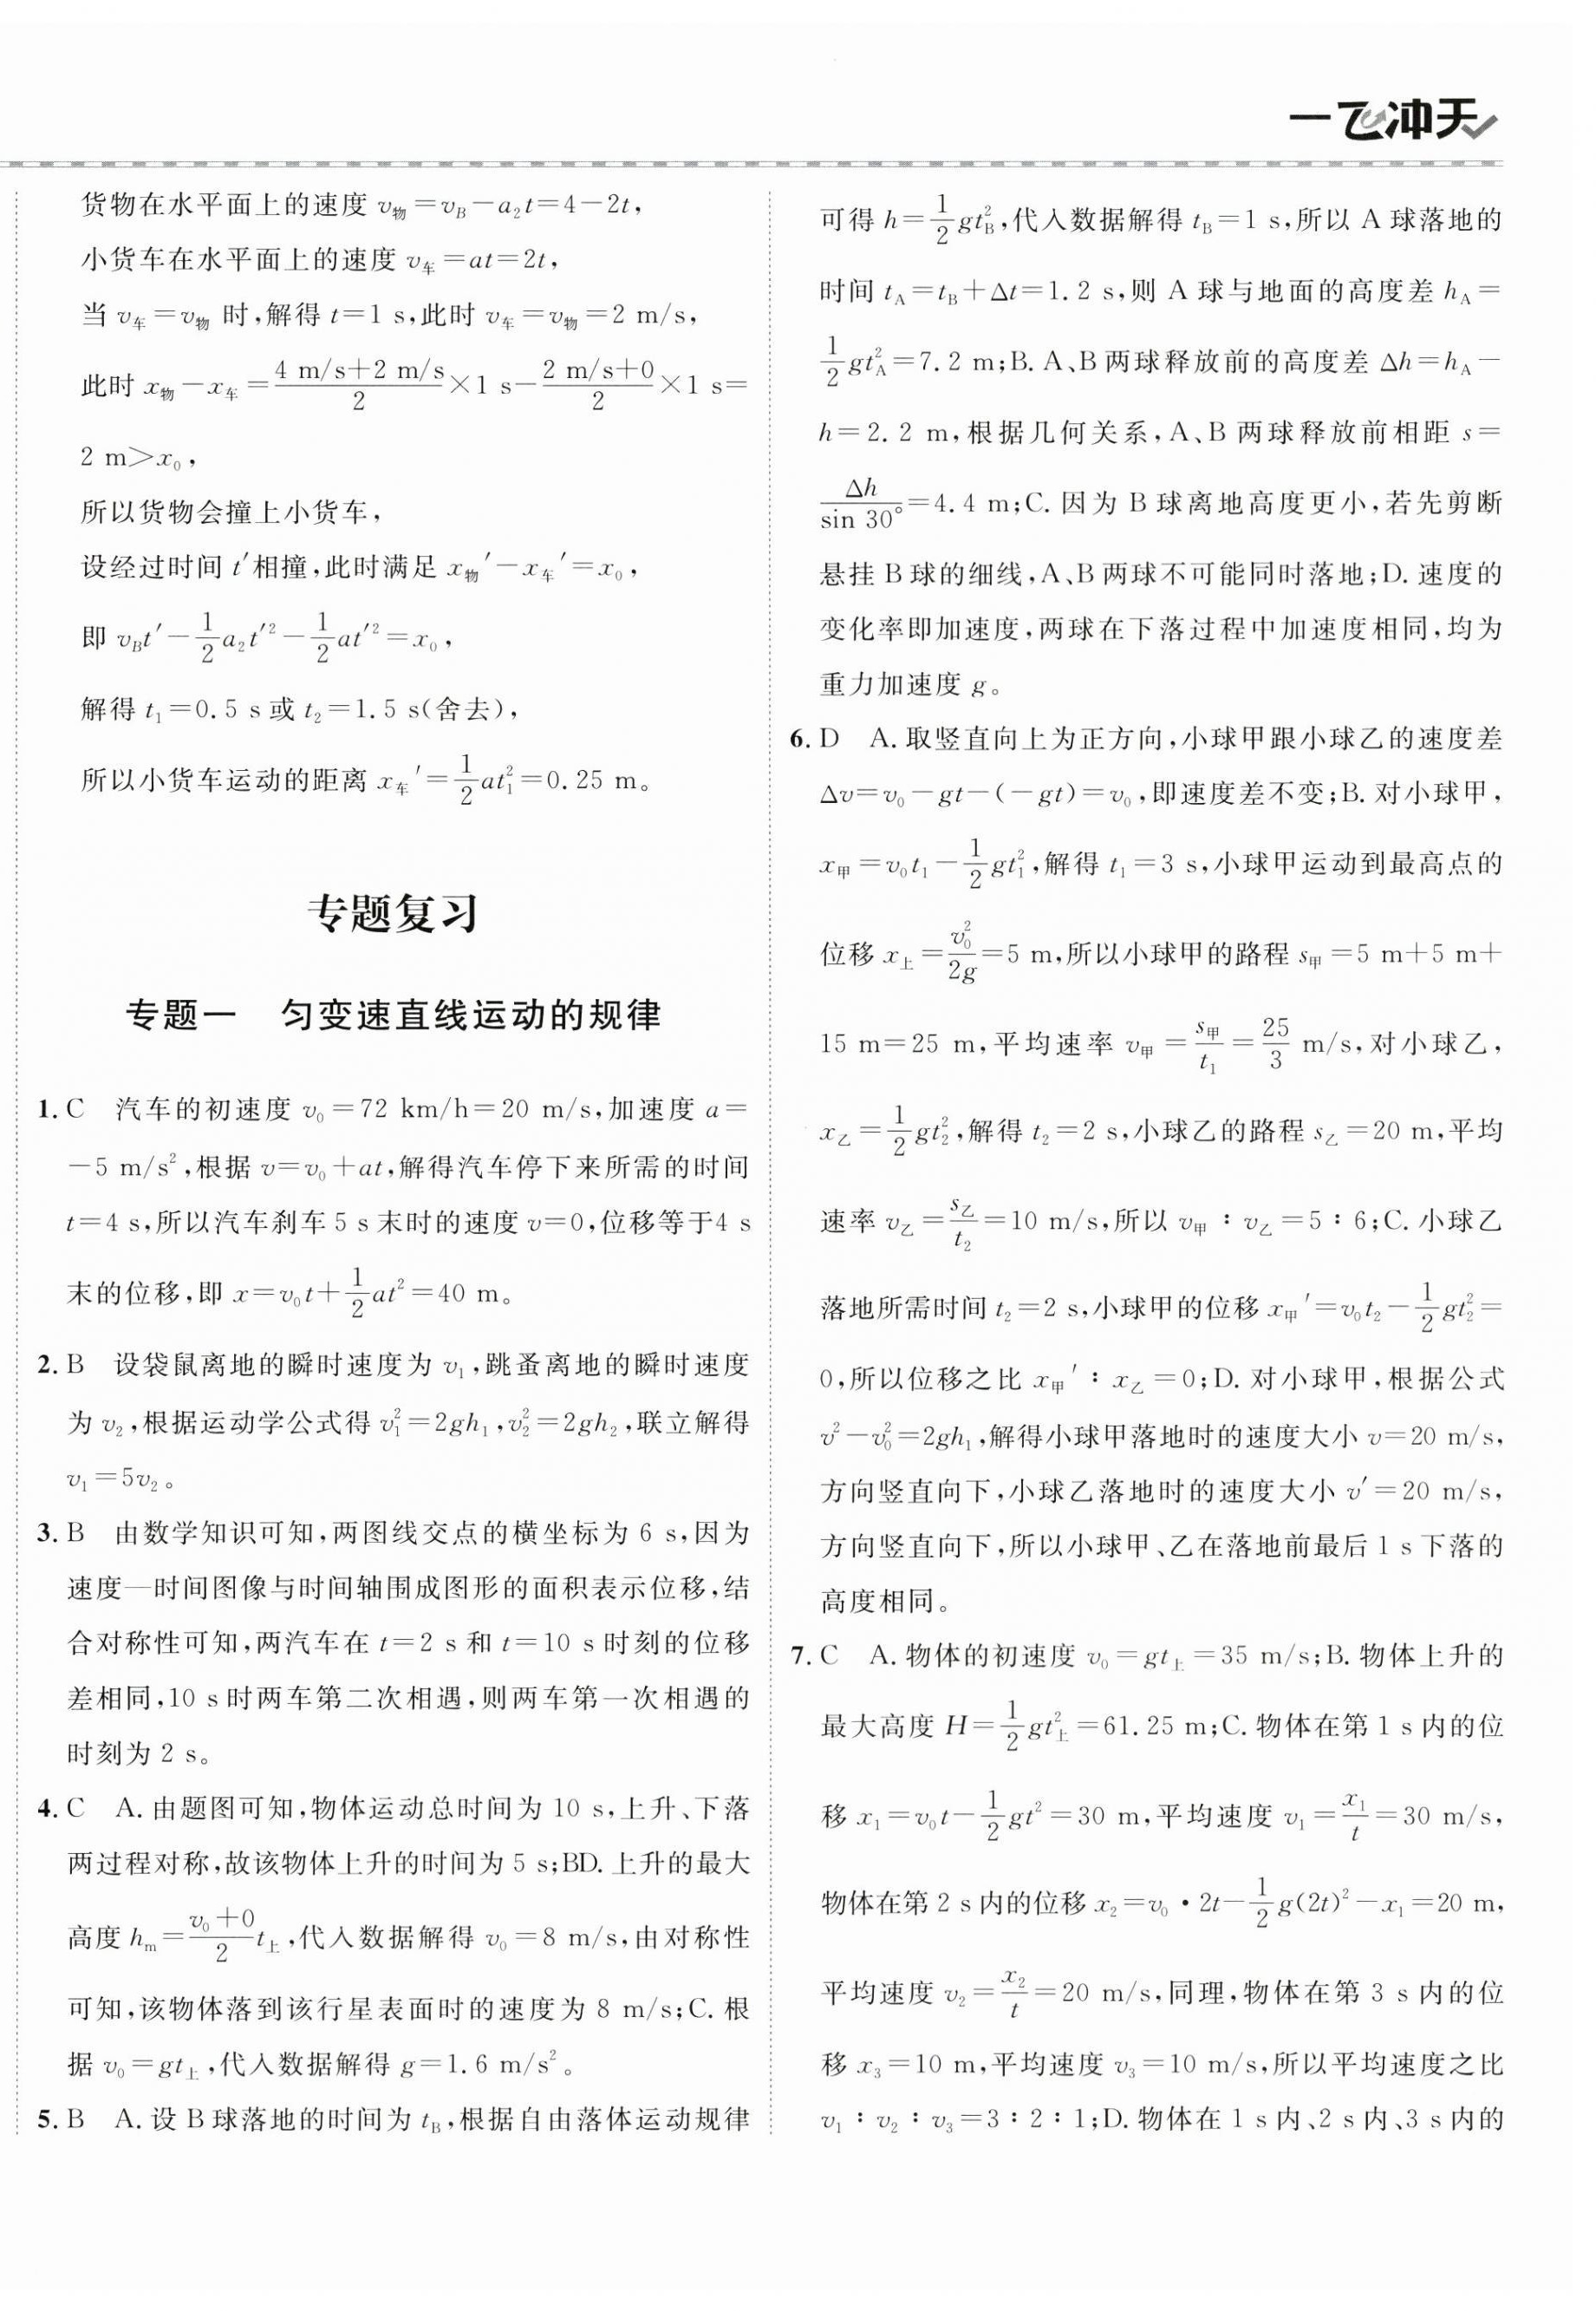 一飞冲天
货物在水平面上的速度 v物＝vB－a₂t＝4－2t，
小货车在水平面上的速度 v车＝at＝2t，
当 v车＝v物 时，解得 t＝1 s，此时 v车＝v物＝2 m/s，
此时 x物－x车＝(4 m/s＋2 m/s)/2×1 s－(2 m/s＋0)/2×1 s＝
2 m＞x₀，
所以货物会撞上小货车，
设经过时间 t′相撞，此时满足 x物′－x车′＝x₀，
即 vBt′－1/2 a₂t′²－1/2 at′²＝x₀，
解得 t₁＝0.5 s或 t₂＝1.5 s(舍去)，
所以小货车运动的距离 x车′＝1/2 at₁²＝0.25 m。
专题复习
专题一 匀变速直线运动的规律
1. C 汽车的初速度 v₀＝72 km/h＝20 m/s，加速度 a＝
－5 m/s²，根据 v＝v₀＋at，解得汽车停下来所需的时间
t＝4 s，所以汽车刹车 5 s 末时的速度 v＝0，位移等于4 s
末的位移，即 x＝v₀t＋1/2 at²＝40 m。
2. B 设袋鼠离地的瞬时速度为 v₁，跳蚤离地的瞬时速度
为 v₂，根据运动学公式得 v₁²＝2gh₁，v₂²＝2gh₂，联立解得
v₁＝5v₂。
3. B 由数学知识可知，两图线交点的横坐标为 6 s，因为
速度—时间图像与时间轴围成图形的面积表示位移，结
合对称性可知，两汽车在 t＝2 s 和 t＝10 s 时刻的位移
差相同，10 s 时两车第二次相遇，则两车第一次相遇的
时刻为 2 s。
4. C A. 由题图可知，物体运动总时间为 10 s，上升、下落
两过程对称，故该物体上升的时间为 5 s；BD. 上升的最大
高度 hm＝(v₀＋0)/2 t上，代入数据解得 v₀＝8 m/s，由对称性
可知，该物体落到该行星表面时的速度为 8 m/s；C. 根
据 v₀＝gt上，代入数据解得 g＝1.6 m/s²。
5. B A. 设 B 球落地的时间为 tB，根据自由落体运动规律
可得 h＝1/2 gtB²，代入数据解得 tB＝1 s，所以 A 球落地的
时间 tA＝tB＋Δt＝1.2 s，则 A 球与地面的高度差 hA＝
1/2 gtA²＝7.2 m；B. A、B 两球释放前的高度差 Δh＝hA－
h＝2.2 m，根据几何关系，A、B 两球释放前相距 s＝
Δh/sin 30°＝4.4 m；C. 因为 B 球离地高度更小，若先剪断
悬挂 B 球的细线，A、B 两球不可能同时落地；D. 速度的
变化率即加速度，两球在下落过程中加速度相同，均为
重力加速度 g。
6. D A. 取竖直向上为正方向，小球甲跟小球乙的速度差
Δv＝v₀－gt－(－gt)＝v₀，即速度差不变；B. 对小球甲，
x甲＝v₀t₁－1/2 gt₁²，解得 t₁＝3 s，小球甲运动到最高点的
位移 x上＝v₀²/2g＝5 m，所以小球甲的路程 s甲＝5 m＋5 m＋
15 m＝25 m，平均速率 v甲＝s甲/t₁＝25/3 m/s，对小球乙，
x乙＝1/2 gt₂²，解得 t₂＝2 s，小球乙的路程 s乙＝20 m，平均
速率 v乙＝s乙/t₂＝10 m/s，所以 v甲∶v乙＝5∶6；C. 小球乙
落地所需时间 t₂＝2 s，小球甲的位移 x甲′＝v₀t₂－1/2 gt₂²＝
0，所以位移之比 x甲′∶x乙＝0；D. 对小球甲，根据公式
v²－v₀²＝2gh₁，解得小球甲落地时的速度大小 v＝20 m/s，
方向竖直向下，小球乙落地时的速度大小 v′＝20 m/s，
方向竖直向下，所以小球甲、乙在落地前最后 1 s 下落的
高度相同。
7. C A. 物体的初速度 v₀＝gt上＝35 m/s；B. 物体上升的
最大高度 H＝1/2 gt上²＝61.25 m；C. 物体在第 1 s 内的位
移 x₁＝v₀t－1/2 gt²＝30 m，平均速度 v₁＝x₁/t＝30 m/s，
物体在第 2 s 内的位移 x₂＝v₀·2t－1/2 g(2t)²－x₁＝20 m，
平均速度 v₂＝x₂/t＝20 m/s，同理，物体在第 3 s 内的位
移 x₃＝10 m，平均速度 v₃＝10 m/s，所以平均速度之比
v₁∶v₂∶v₃＝3∶2∶1；D. 物体在 1 s 内、2 s 内、3 s 内的